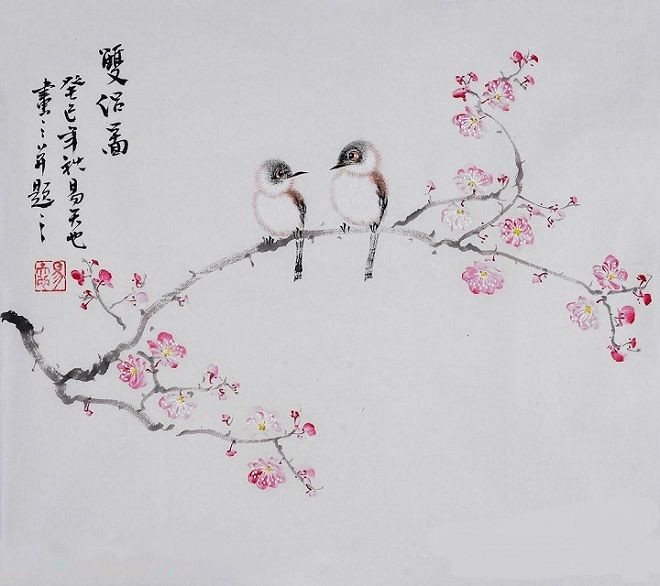 雙侶啚
癸巳年秋易天也
畫之并題之